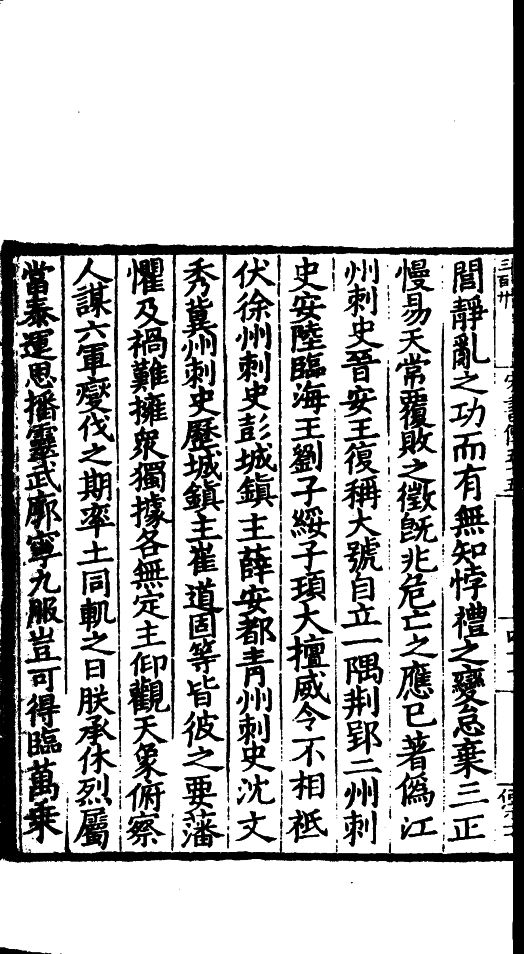 聞靜亂之功而有無知悖禮之變怠棄三正
慢易天常覆敗之徵旣兆危亡之應已著僞江
州刺史晉安王復稱大號自立一隅荆郢二州刺
史安陸臨海王劉子綏子頊大擅威令不相祗
伏徐州刺史彭城鎮主薛安都青州刺史沈文
秀冀州刺史歷城鎮主崔道固等皆彼之要藩
懼及禍難擁衆獨據各無定主仰觀天象俯察
人謀六軍燮伐之期率土同軌之日朕承休烈屬
當泰運思播靈武廓寧九服豈可得臨萬乗